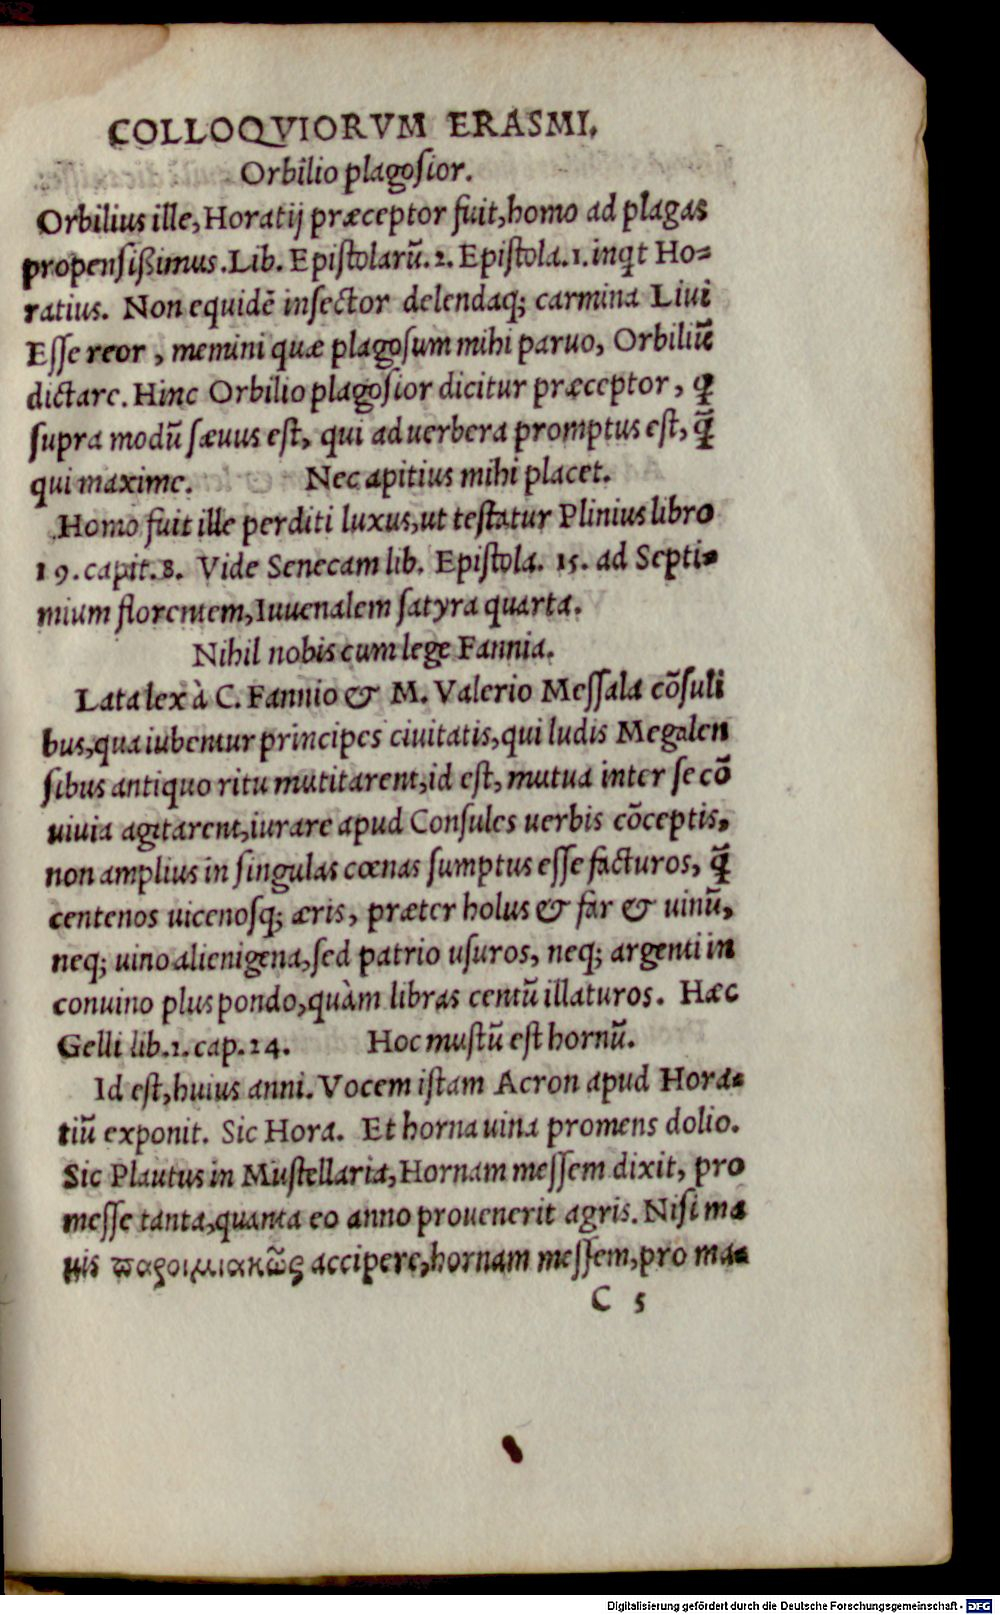 COLLOQVIORVM ERASMI.
Orbilio plagosior.
Orbilius ille, Horatij præceptor fuit, homo ad plagas
propensißimus. Lib. Epistolarũ. 2. Epistola. 1. inqt Ho=
ratius. Non equidẽ insector delendaq; carmina Livi
Esse reor, memini quæ plagosum mihi paruo, Orbiliũ
dictare. Hinc Orbilio plagosior dicitur præceptor, q
supra modũ sæuus est, qui ad uerbera promptus est, q̃
qui maxime. Nec apitius mihi placet.
Homo fuit ille perditi luxus, ut testatur Plinius libro
19. capit. 8. Vide Senecam lib. Epistola. 15. ad Septi=
mium florentem, Iuuenalem satyra quarta.
Nihil nobis cum lege Fannia.
Lata lex à C. Fannio & M. Valerio Messala cõsuli
bus, qua iubentur principes ciuitatis, qui ludis Megalen
sibus antiquo ritu mutitarent, id est, mutua inter se cõ
uiuia agitarent, iurare apud Consules uerbis cõceptis,
non amplius in singulas cœnas sumptus esse facturos, q̃
centenos uicenosq; æris, præter holus & far & uinũ,
neq; uino alienigena, sed patrio usuros, neq; argenti in
conuino plus pondo, quàm libras centũ illaturos. Hæc
Gelli lib. 1. cap. 24. Hoc mustũ est hornũ.
Id est, huius anni. Vocem istam Acron apud Hora=
tiũ exponit. Sic Hora. Et horna uina promens dolio.
Sic Plautus in Mustellaria, Hornam messem dixit, pro
messe tanta, quanta eo anno prouenerit agris. Nisi ma
uis παροιμιακῶς accipere, hornam messem, pro ma=
C 5
Digitalisierung gefördert durch die Deutsche Forschungsgemeinschaft - DFG